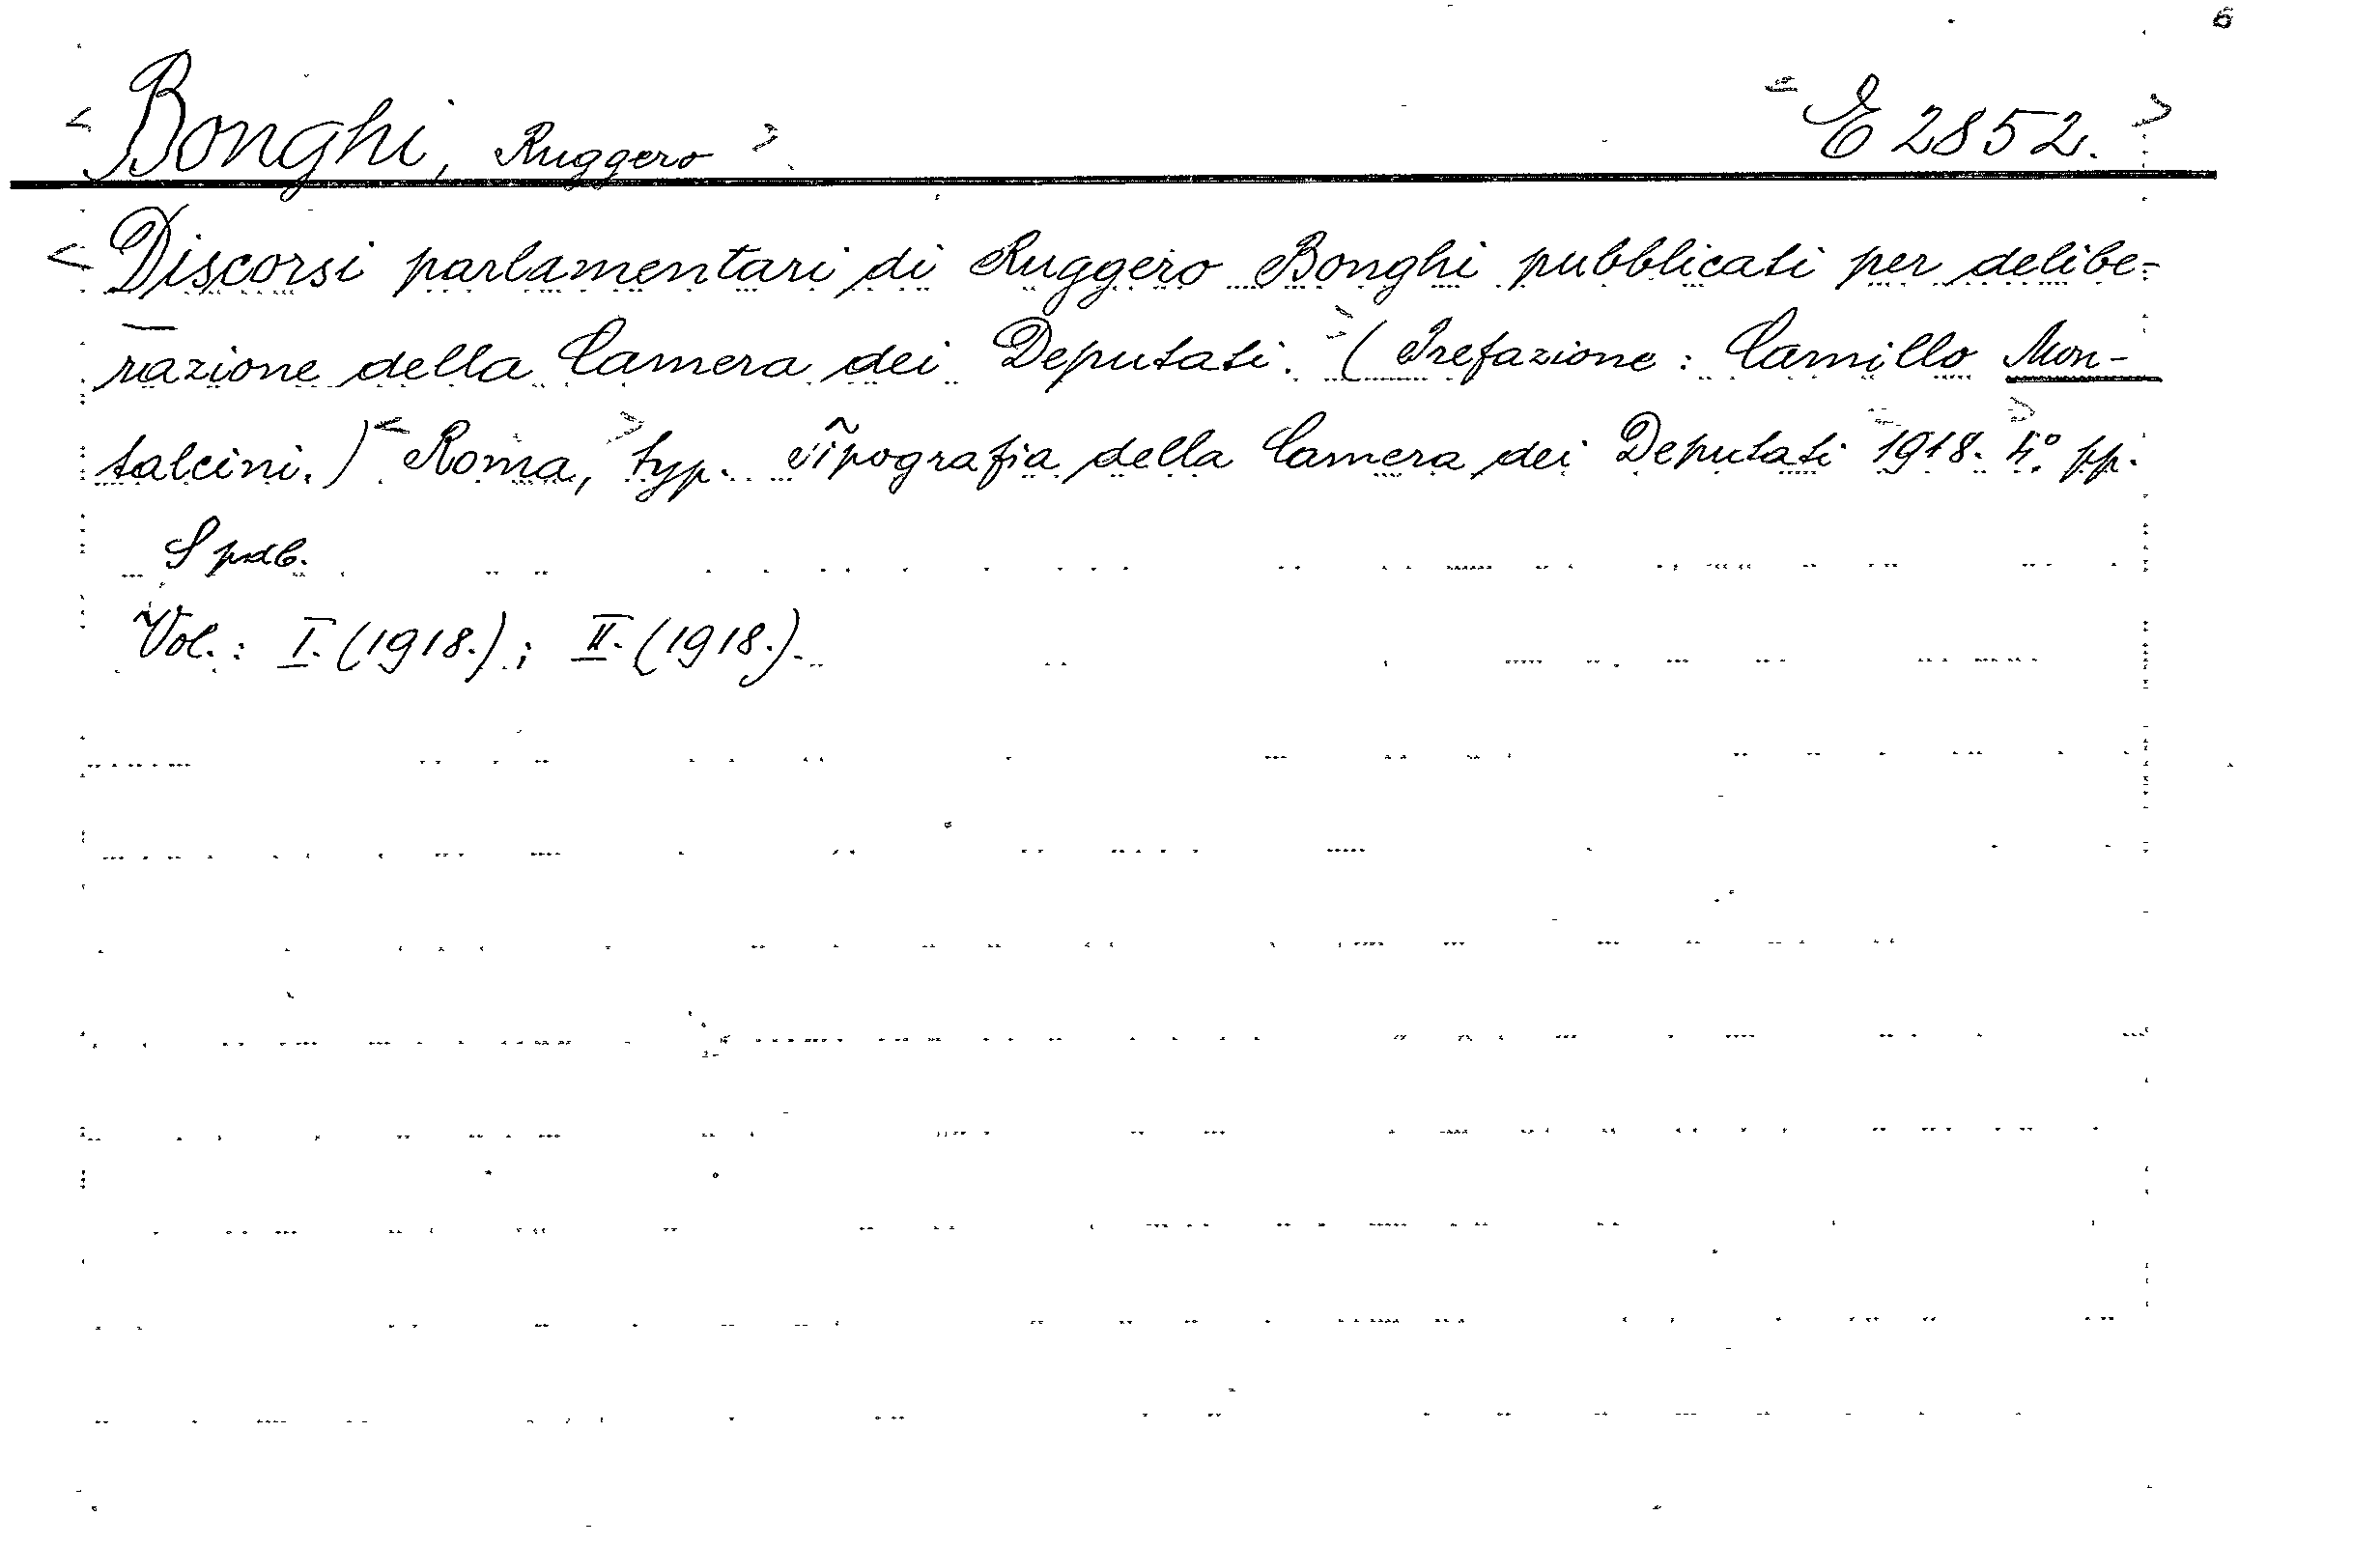 6
<Bonghi, Ruggero> <E 2852.>
<Discorsi parlamentari di Ruggero Bonghi pubblicati per delibe-
razione della Camera dei Deputati.> (Prefazione: Camillo Mon-
talcini.) <Roma,> typ. Tipografia della Camera dei Deputati <1918. 4°.> pp.
Vol.: I. (1918.); II. (1918.).